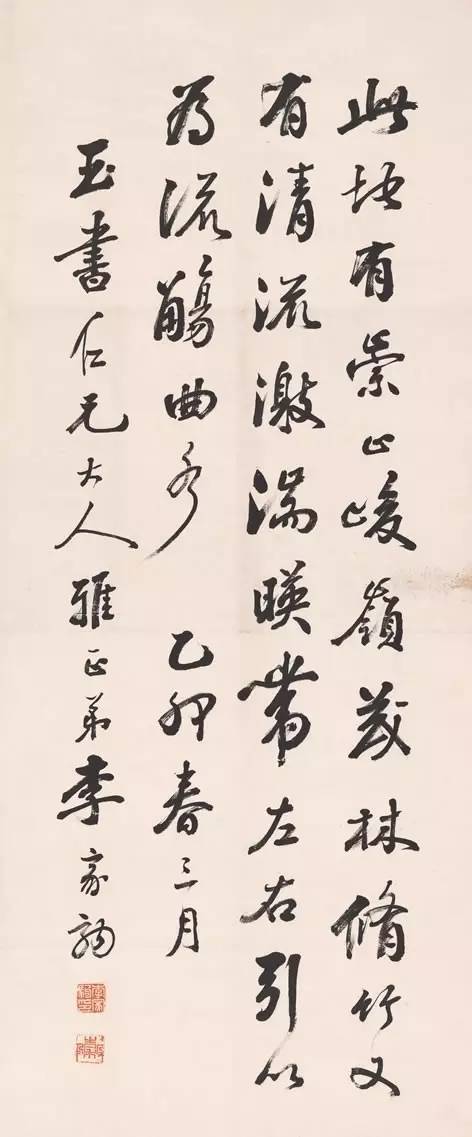 此地有崇山峻嶺茂林脩竹又
有清流激湍暎帶左右引以
為流觴曲水 乙卯春三月
玉書仁兄大人雅正弟李家駒